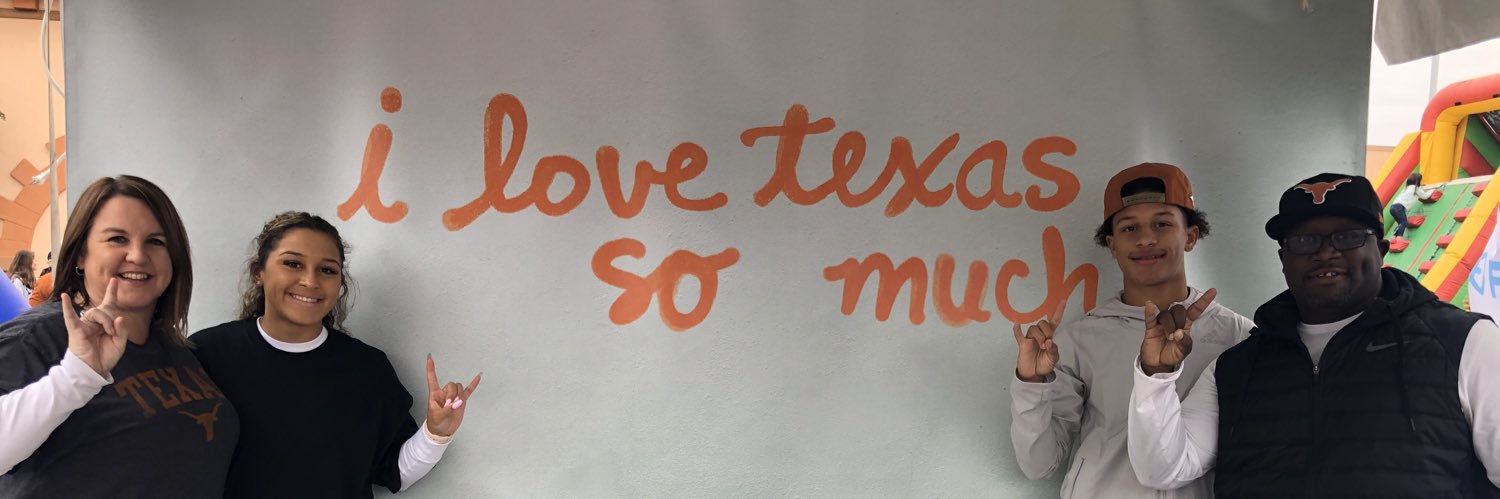 i love texas
so much
TEXA